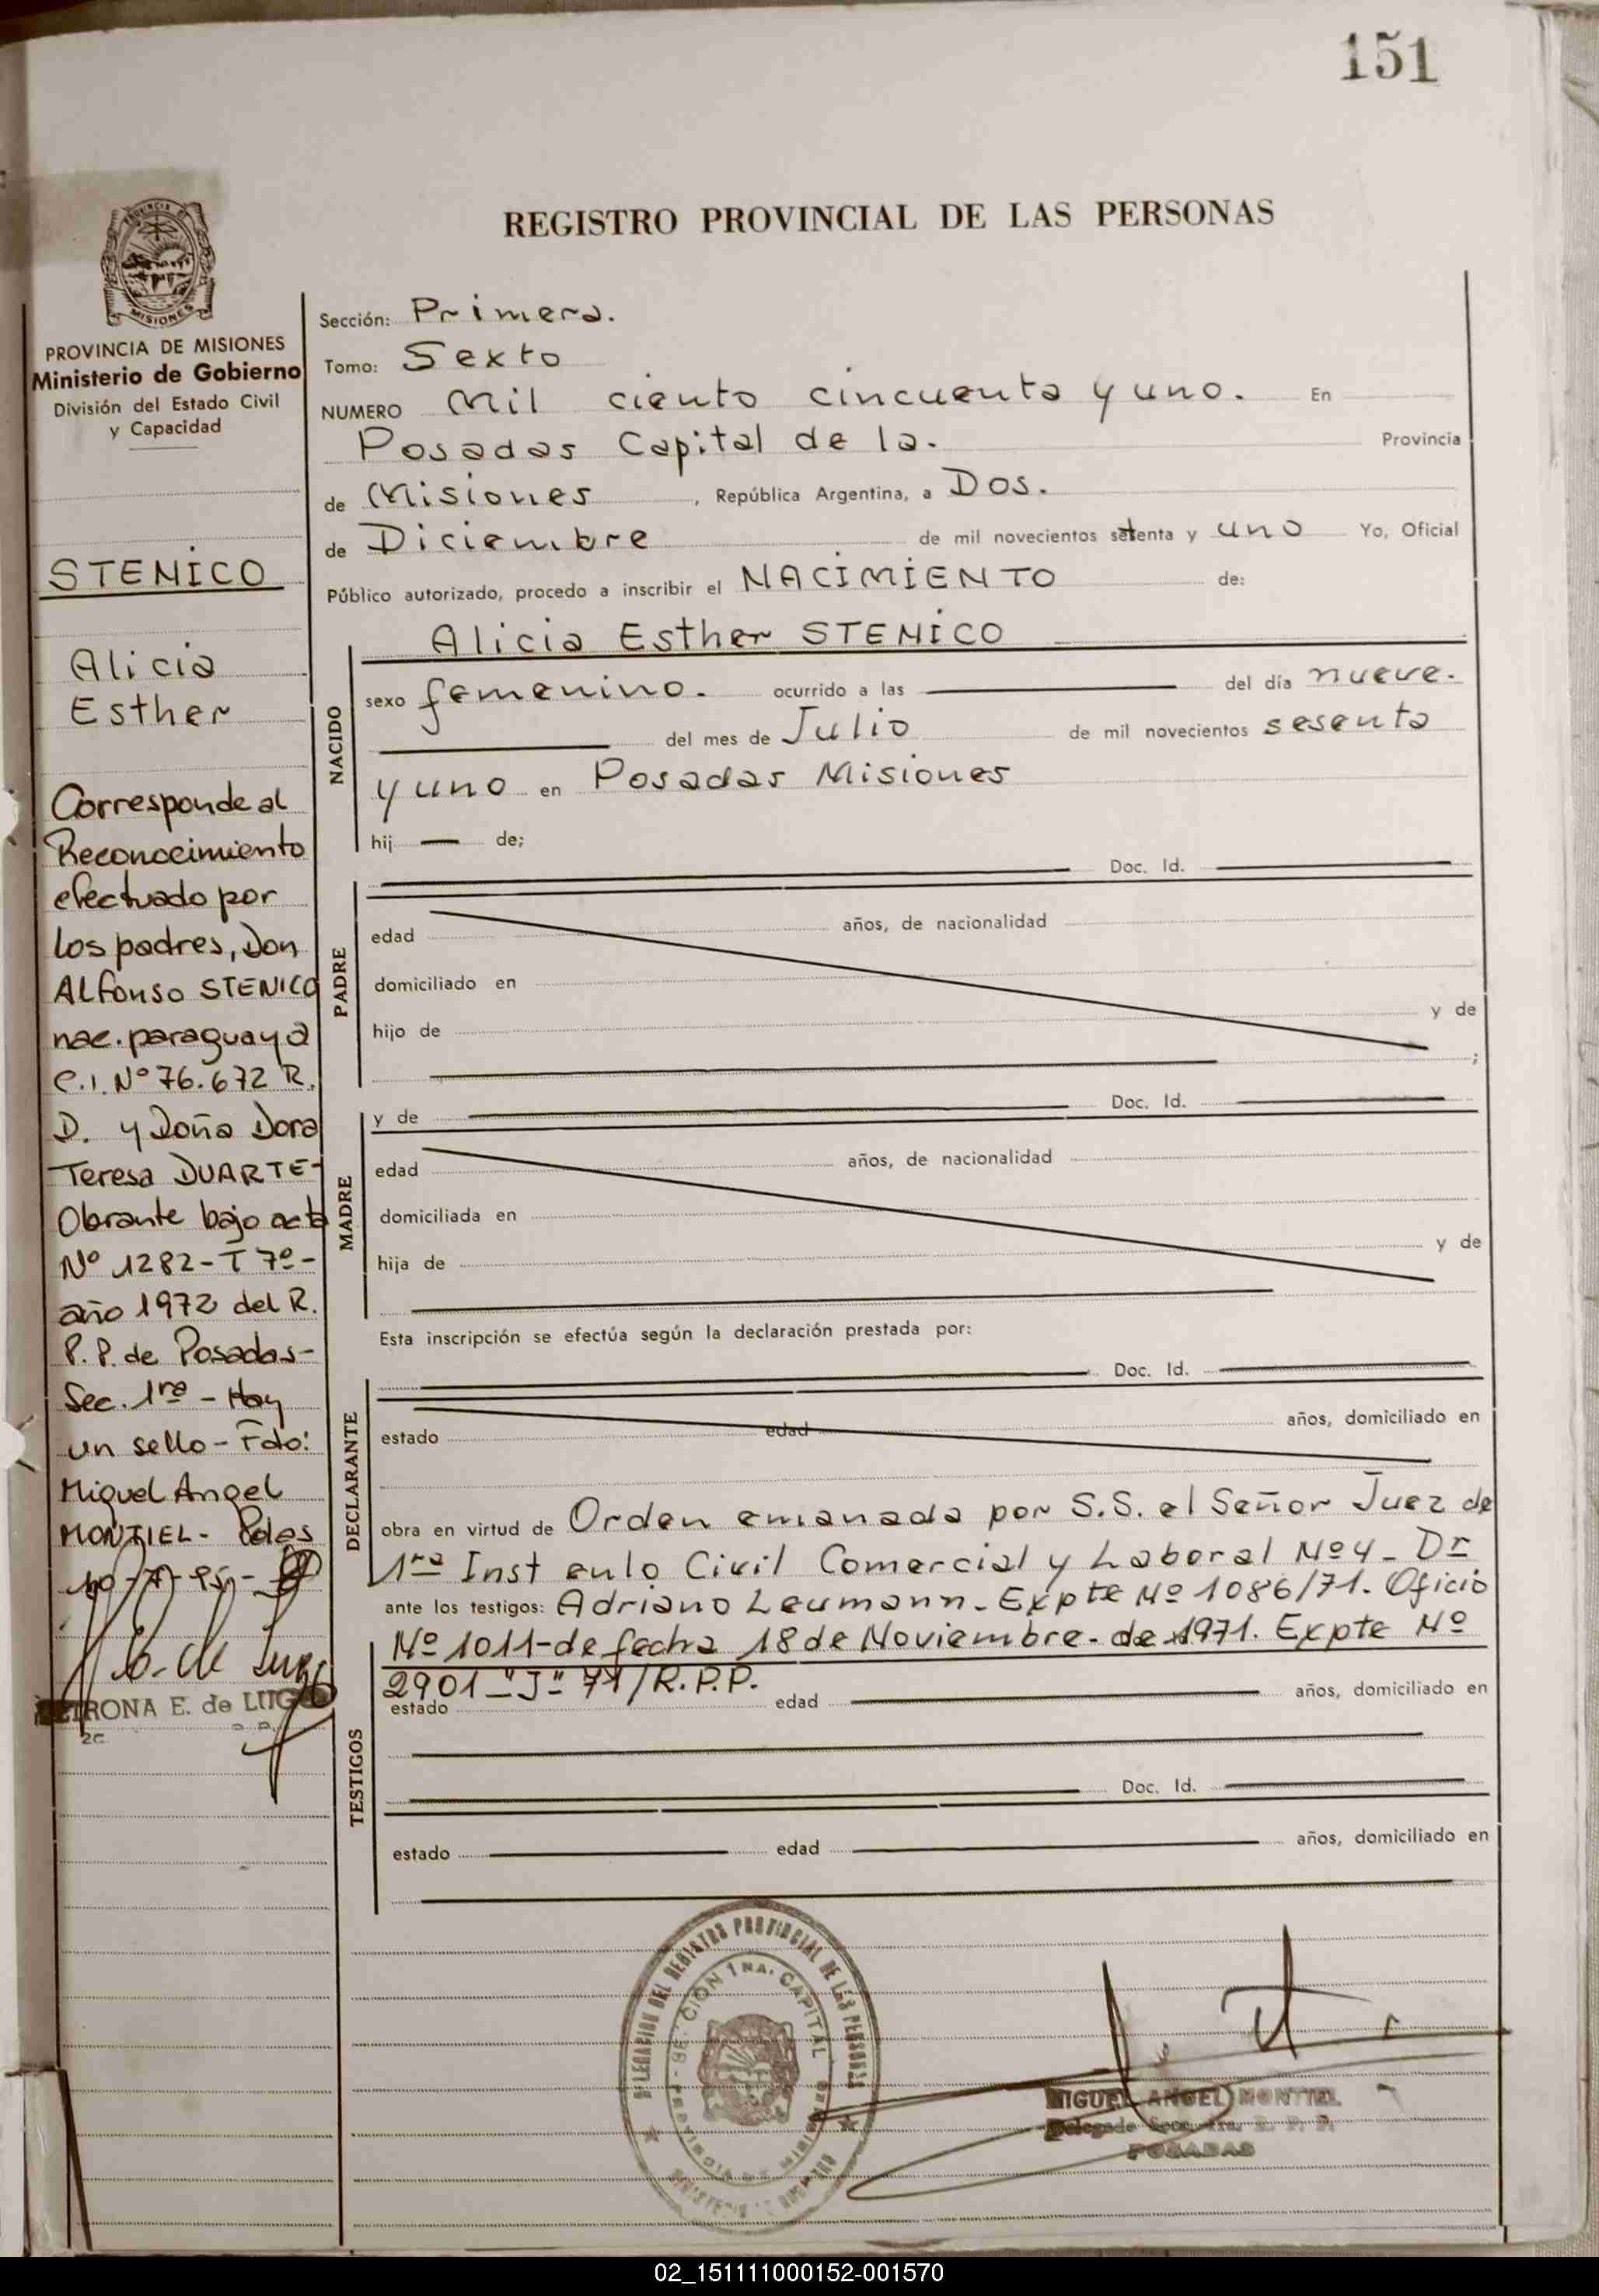 151
REGISTRO PROVINCIAL DE LAS PERSONAS
PROVINCIA DE
MISIONES
PROVINCIA DE MISIONES
Ministerio de Gobierno
División del Estado Civil
y Capacidad
STENICO
Alicia
Esther
Corresponde al
Reconocimiento
efectuado por
los padres, Don
ALfonso STENICO
nac. paraguaya
C.I. Nº 76.672 R.
D. y Doña Dora
Teresa DUARTE-
Obrante bajo acta
Nº 1282-T 7º-
año 1972 del R.
P.P. de Posadas-
Sec. 1ra - Hay
un sello - Fdo:
Miguel Angel
MONTIEL- Pdas
PETRONA E. de LUGO
Sección: Primera.
Tomo: Sexto
NUMERO Mil ciento cincuenta y uno. En
Posadas Capital de la. Provincia
de Misiones, República Argentina, a Dos.
de Diciembre de mil novecientos setenta y uno Yo, Oficial
Público autorizado, procedo a inscribir el NACIMIENTO de:
Alicia Esther STENICO
NACIDO
sexo femenino. ocurrido a las del día nueve.
del mes de Julio de mil novecientos sesenta
y uno en Posadas Misiones
hij de;
Doc. Id.
PADRE
edad años, de nacionalidad
domiciliado en
hijo de y de
;
y de Doc. Id.
MADRE
edad años, de nacionalidad
domiciliada en
hija de y de
Esta inscripción se efectúa según la declaración prestada por:
Doc. Id.
DECLARANTE
estado edad años, domiciliado en
obra en virtud de Orden emanada por S.S. el Señor Juez de
1ra Inst en lo Civil Comercial y Laboral Nº 4- Dr
ante los testigos: Adriano Leumann- Expte Nº 1086/71. Oficio
Nº 1011-de fecha 18 de Noviembre- de 1971. Expte Nº
2901-"J"-71/R.P.P.
TESTIGOS
estado edad años, domiciliado en
Doc. Id.
estado edad años, domiciliado en
DELEGACION DEL REGISTRO PROVINCIAL DE LAS PERSONAS
SECCION 1RA. CAPITAL
PROVINCIA DE MISIONES
MIGUEL ANGEL MONTIEL
Delegado Secc. 1ra. R. P. P.
POSADAS
02_151111000152-001570